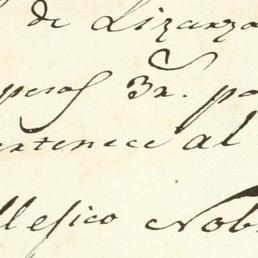 de Lizarza
peros 3r. po
ertenece al
llesico Nob